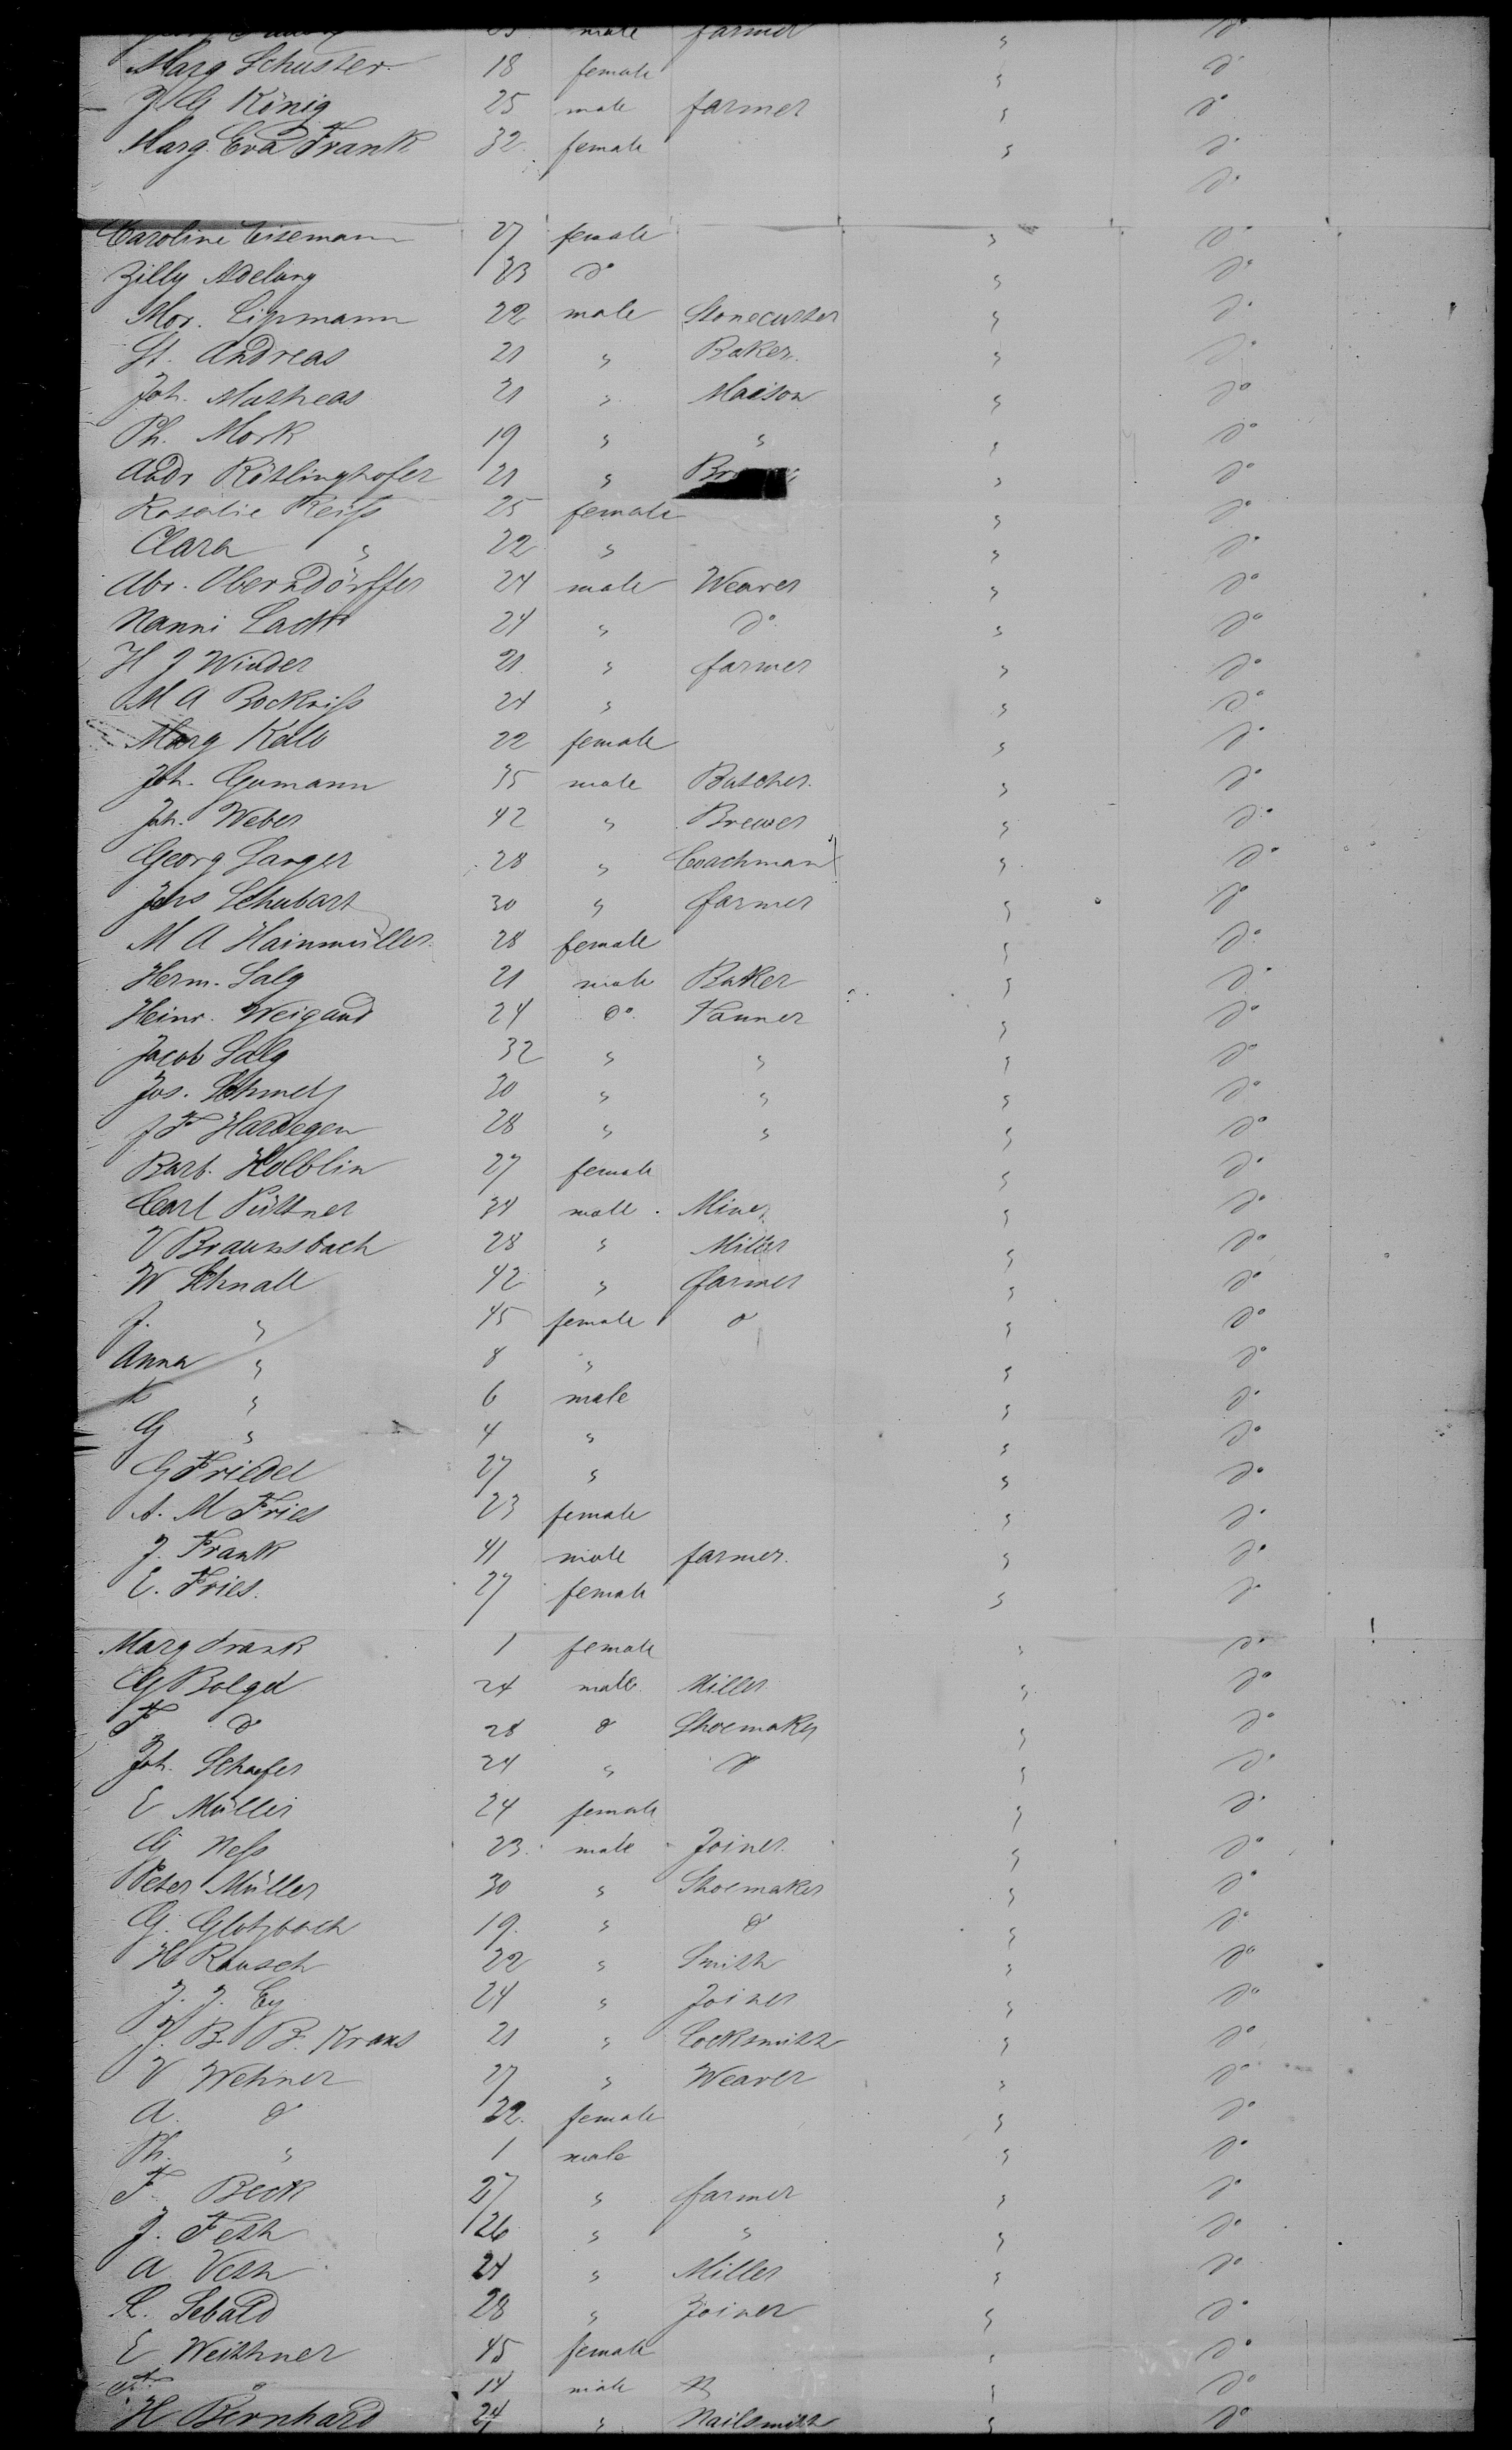 male farmer " do
Marg Schuster 18 female " do
J. G König 25 male farmer " do
Marg. Eva Frank 32 female " do
do
Caroline Eisemann 27 female " do
Zilly Adelung 23 do " do
Mor. Lipmann 22 male Stonecutter " do
St. Andreas 21 " Baker " do
Joh. Matheas 21 " Maison " do
Ph. Mork 19 " " " do
Andr Röthlinghofer 21 " " do
Rosalie Reiss 25 female " do
Clara " 22 " " do
Abr. Oberndörffer 24 male Weaver " do
Nanni 24 " do " do
H J Winder 21 " farmer " do
M A 24 " " do
Marg Kalb 22 female " do
Joh. Gumann 35 male Butcher " do
Joh. Weber 42 " Brewer " do
Georg Langer 28 " Coachman " do
Jhs Schubart 30 " farmer " do
M A Hainmüller 28 female " do
Herm. Salg 21 male Baker " do
Heinr. Weigand 24 do Tanner " do
Jacob Salg 32 " " " do
Jos. Schmelz " " " do
J F Hardegen 28 " " " do
Barb. Holblin 27 female " do
Carl Püttner 34 male Miner " do
V Braunsbach 28 " Miller " do
W Schnall 42 " farmer " do
J. " 45 female do " do
Anna " 8 " " do
K " 6 male " do
G " 4 " " do
G Friedel 27 " " do
A. M Fries 23 female " do
J. Frank 41 male farmer " do
E. Fries 27 female " do
Marg Frank 1 female " do
G Bolgd 24 male Miller " do
F do 28 do Shoemaker " do
Joh. Schaefer 24 " do " do
E Müller 24 female " do
G Ness 23 male Joiner " do
Peter Müller 30 " Shoemaker " do
G. Glotzbach 19 " do " do
H Rausch 22 " Smith " do
J. J. Ey 24 " Joiner " do
J. B. B. Kraus 21 " Locksmith " do
V Wehner 27 " Weaver " do
A. do 32 female " do
Ph. " 1 male " do
F Beck 27 " farmer " do
J. Feth 26 " " " do
A Veth 24 " Miller " do
L. Sebald 28 " Joiner " do
E Weithner 45 female " do
14 male " do
H Bernhard 24 " Nailsmith " do